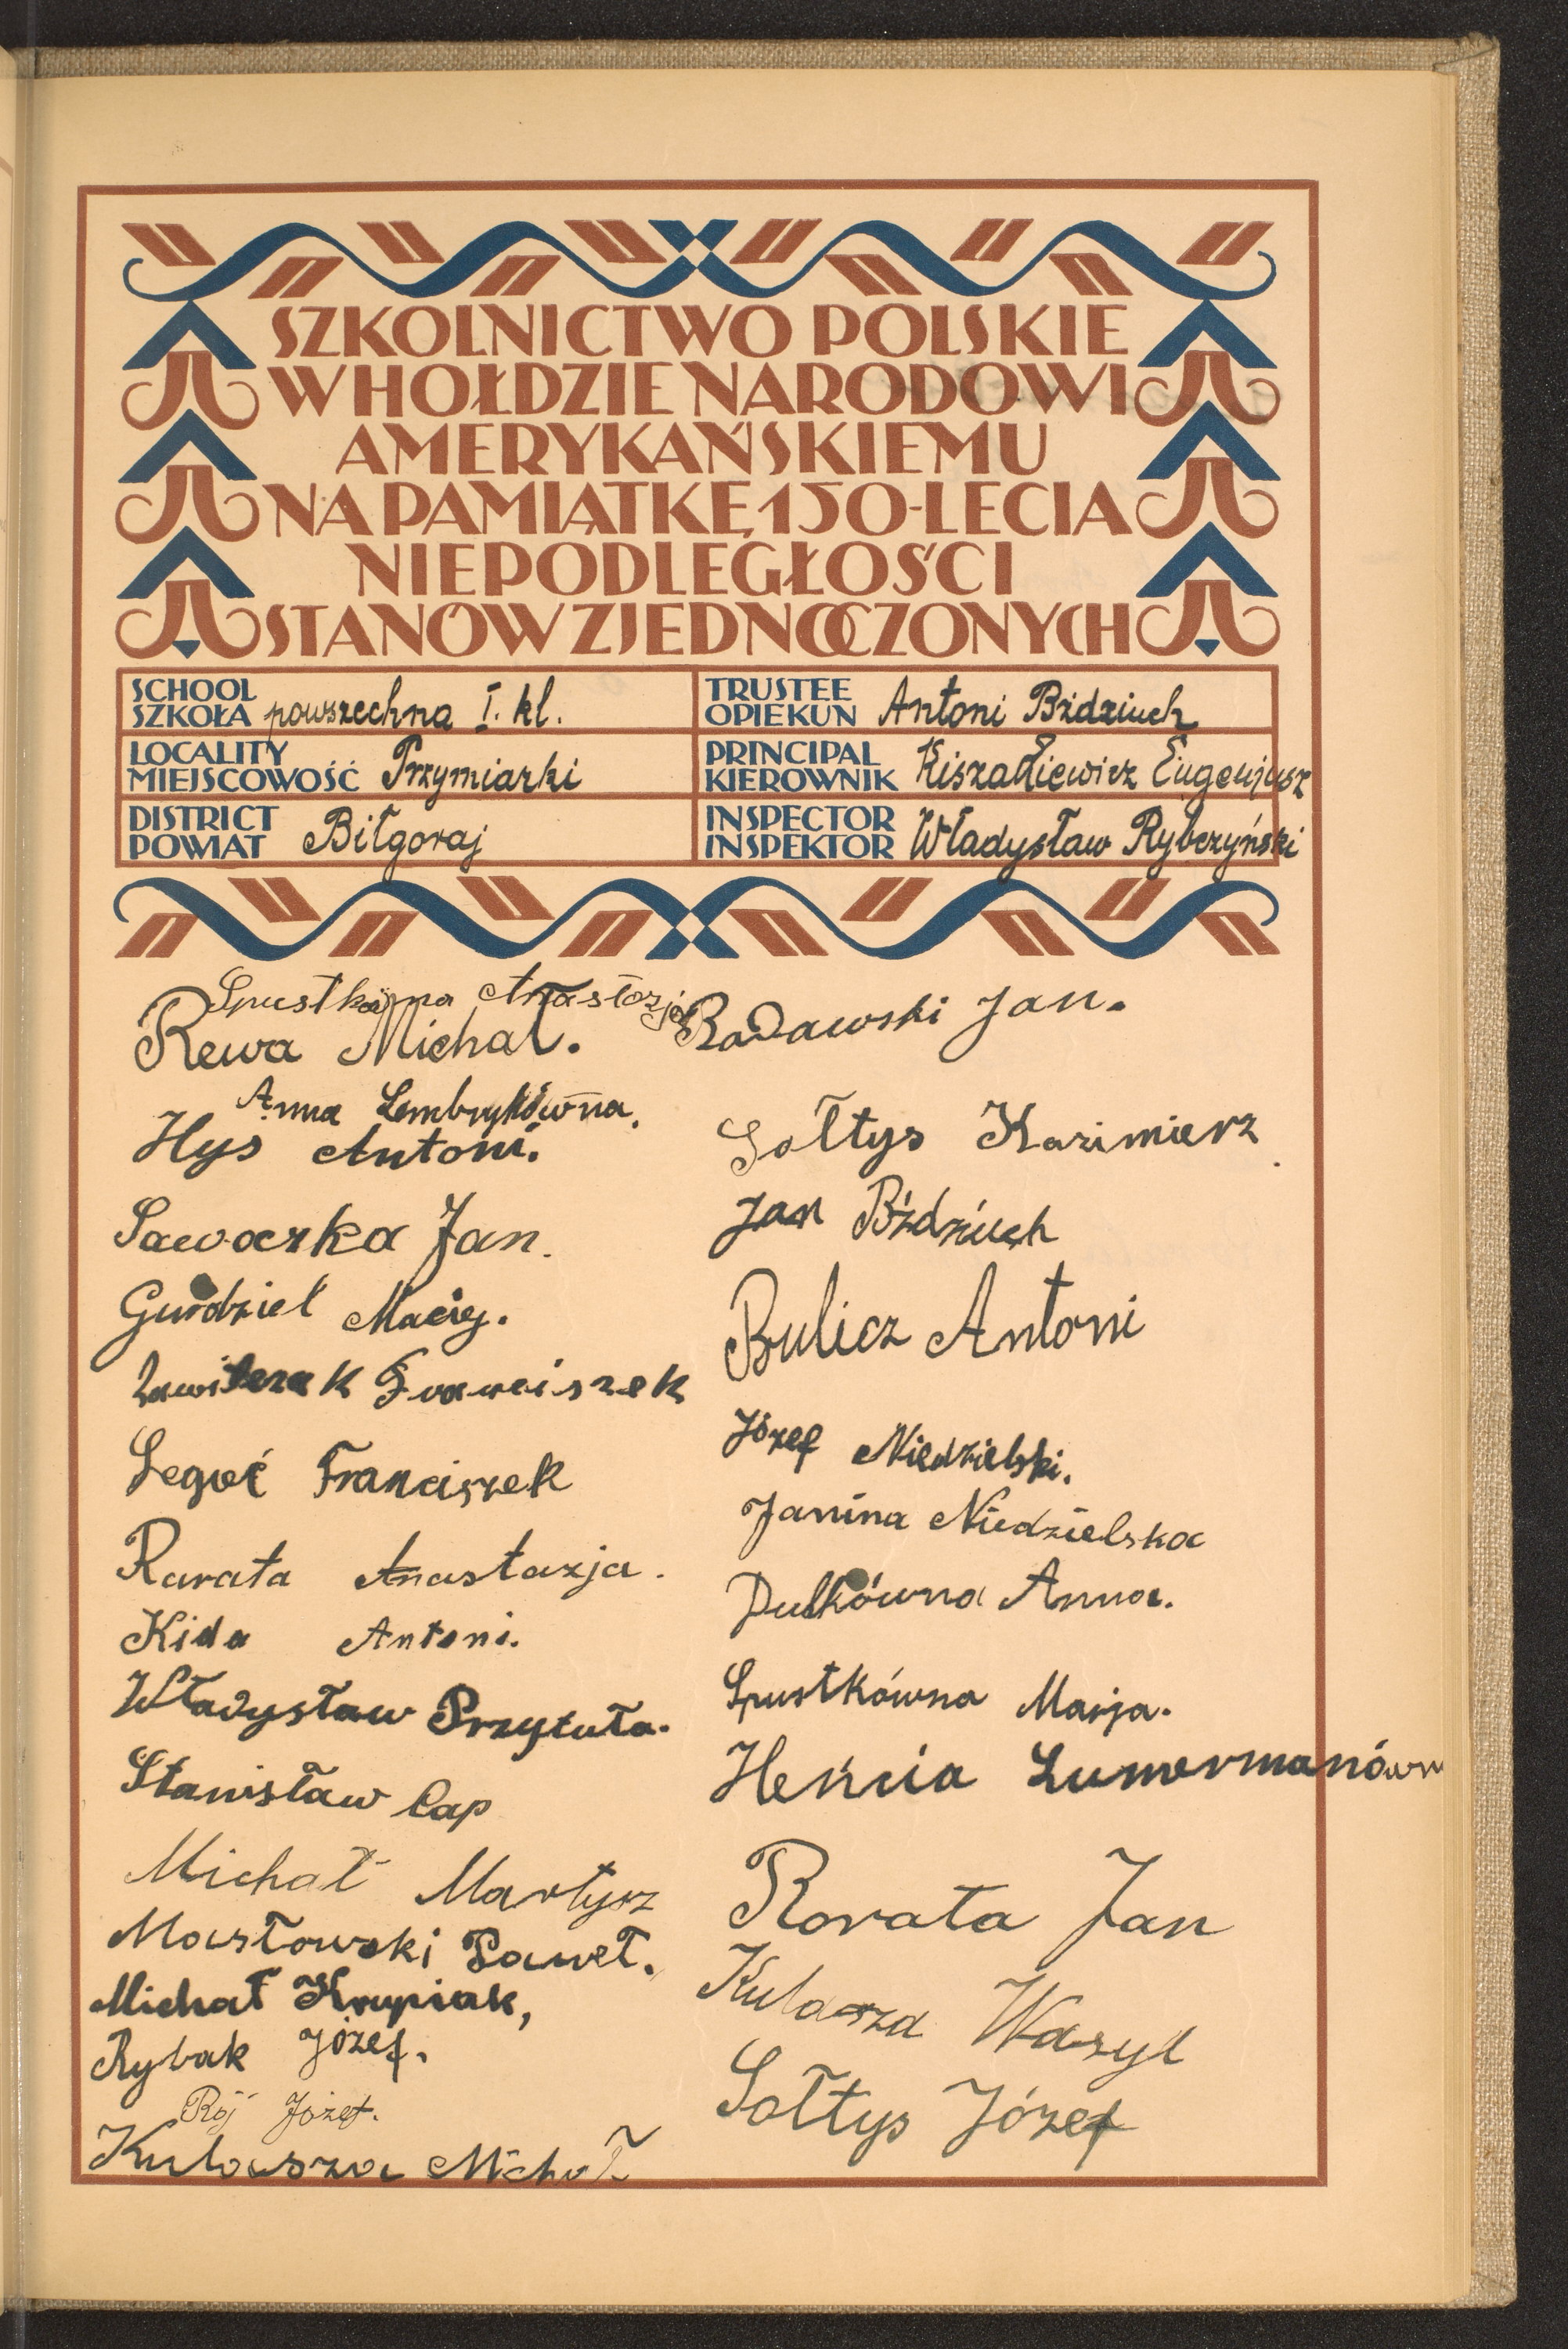 SZKOLNICTWO POLSKIE
W HOŁDZIE NARODOWI
AMERYKAŃSKIEMU
NA PAMIĄTKĘ 150-LECIA
NIEPODLEGŁOŚCI
STANÓW ZJEDNOCZONYCH
SCHOOL
SZKOŁA powszechna I. kl.
TRUSTEE
OPIEKUN Antoni Bździuch
LOCALITY
MIEJSCOWOŚĆ Przymiarki
PRINCIPAL
KIEROWNIK Eugenjusz
DISTRICT
POWIAT Biłgoraj
INSPECTOR
INSPEKTOR Władysław Rybczyński
Anastazja
Rewa Michał.
Anna Lembrykówna.
Hys Antoni.
Sawaczka Jan.
Gurdziel Maciej.
Franciszek
Segieć Franciszek
Rarata Anastazja.
Kida Antoni.
Władysław Przytuła.
Stanisław Cap
Michał Martysz
Masłowski Paweł.
Michał Krupiak,
Rybak Józef.
Rój Józef.
Kulasza Michał
Radawski Jan.
Sołtys Kazimierz
Jan Bździuch
Bulicz Antoni
Józef Niedzielski.
Janina Niedzielska
Dulkówna Anna.
Spustkówna Marja.
Heńcia
Rorata Jan
Kulasza Wasyl
Sołtys Józef